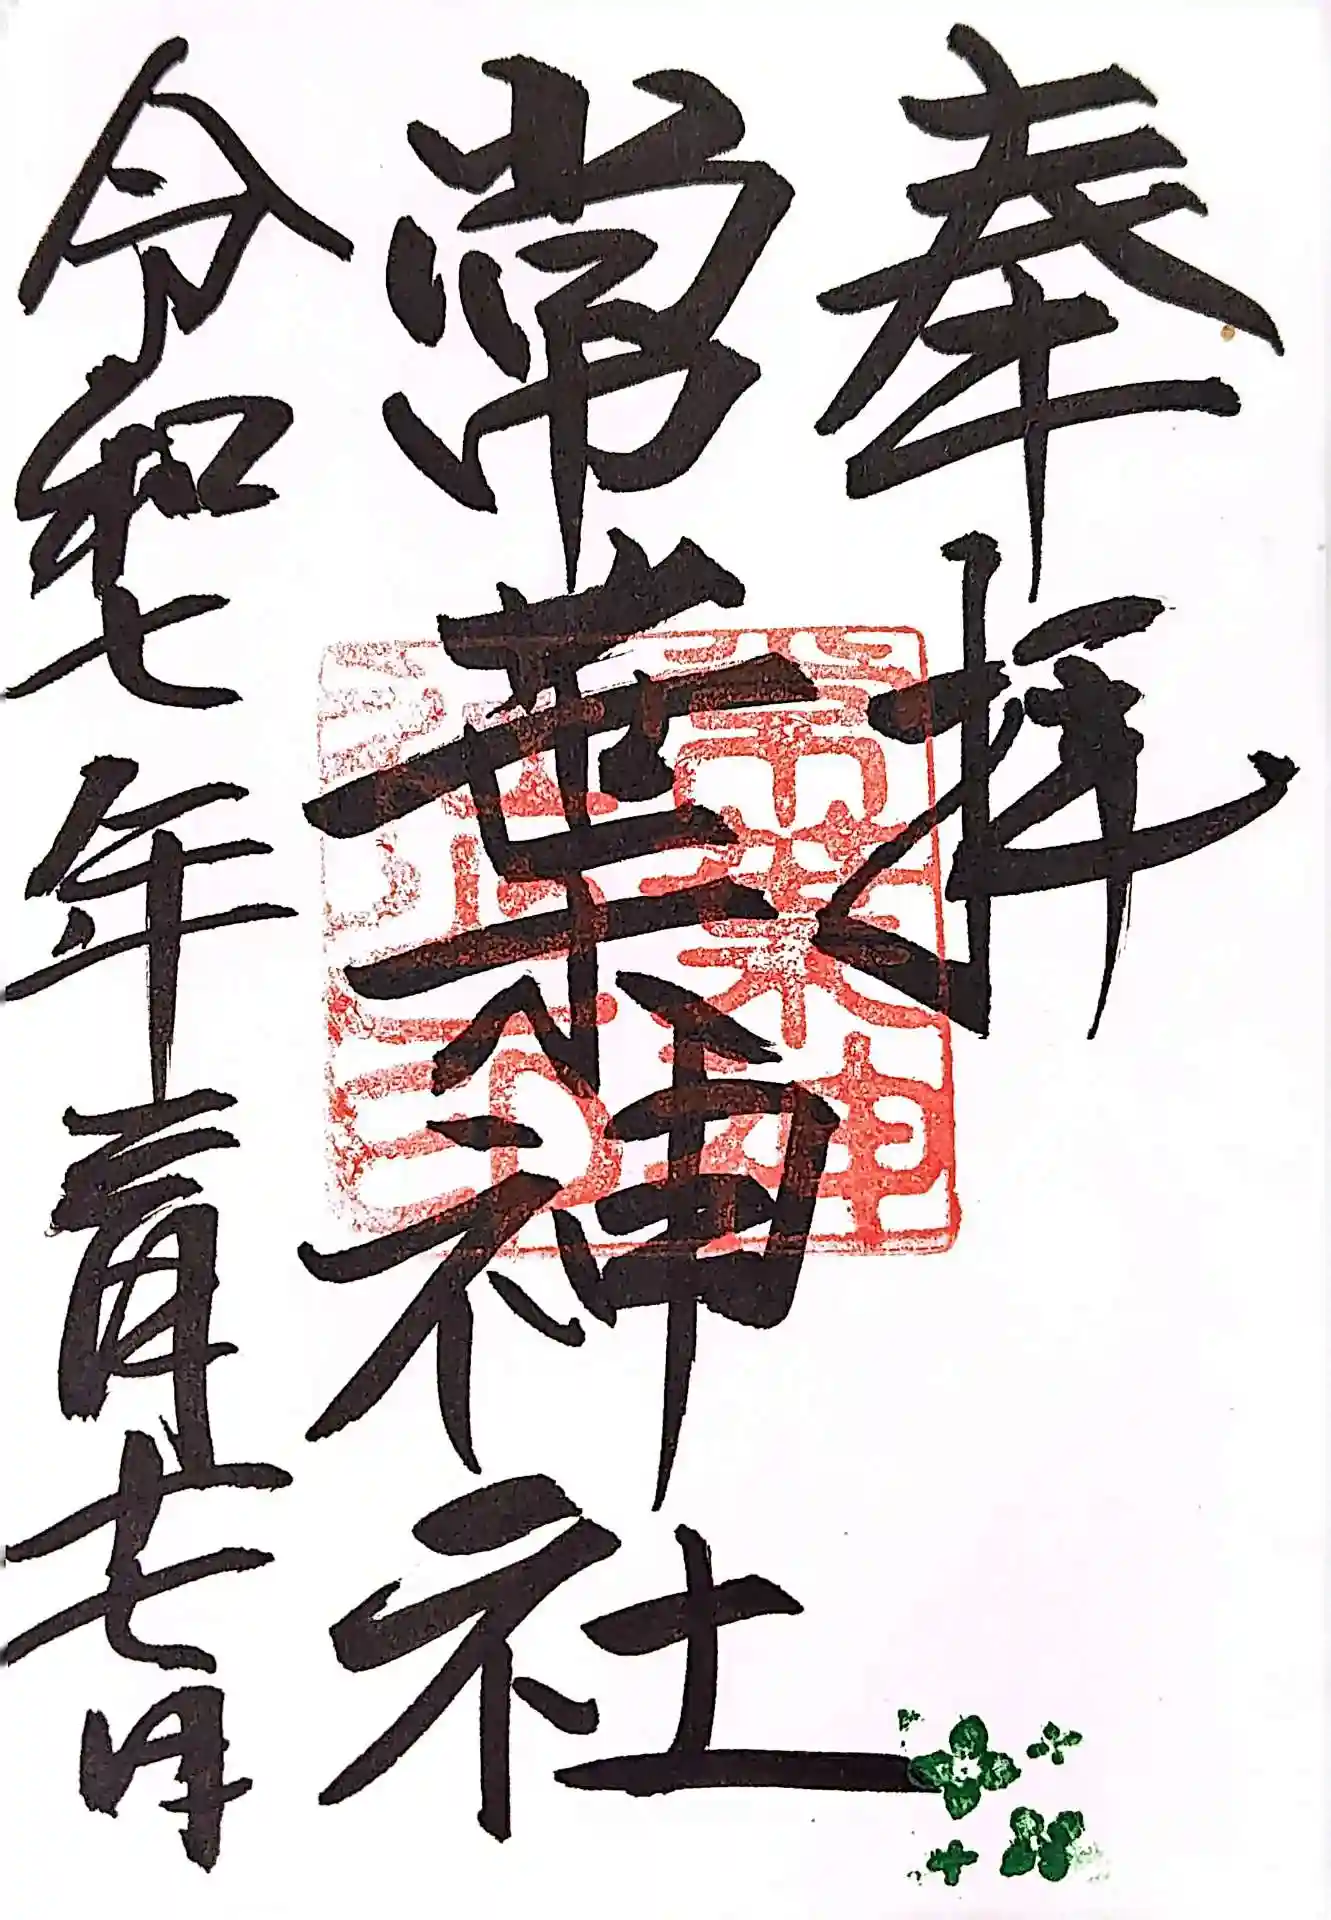 奉拝
常葉神社
令和七年三月十七日
常葉神